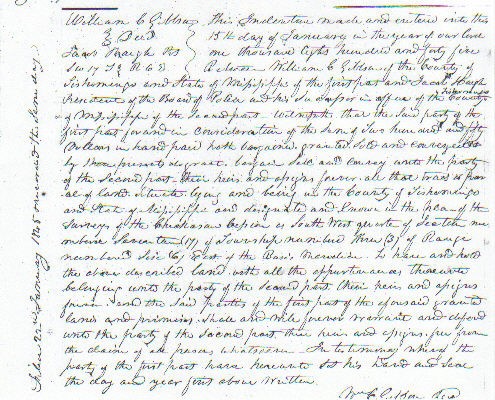 William C Gibson
} Deed
Jacob Haugh Prs
SW 17 T3 R6 E
This Indenture made and entered into this
15th day of January in the year of our Lord
one thousand eight hundred and forty five
Between William C Gibson of the County of
Tishomingo and State of Mississippi of the first part and Jacob Haugh
President of the Board of Police and his Successors in office of the County
Tishomingo
of Mississippi of the Second part Witnesseth that the Said party of the
first part for and in Consideration of the Sum of Two hundred and fifty
Dollars in hand paid hath bargained granted Sold and conveyed and
by these presents do grant bargain Sell and convey unto the party
of the Second part their heirs and assigns forever all that tract or par-
cel of land Situate lying and being in the County of Tishomingo
and State of Mississippi and designated and known in the plan of the
Surveys of the Chickasaw Cession as South West quarter of Section nu
mbered Seventeen (17) of Township numbered three (3) of Range
numbered Six (6) East of the Basis Meridian To have and hold
the above described land with all the appurtenances thereunto
belonging unto the party of the Second part their heirs and assigns
forever and the Said parties of the first part the aforesaid granted
lands and premises Shall and will forever warrant and defend
unto the party of the Second part their heirs and assigns free from
the claim of all persons whatsoever In testimony whereof the
party of the first part have hereunto Set his Hand and Seal
the day and year first above written
Wm C Gibson Seal
Filed 22nd January 1845 recorded the Same day